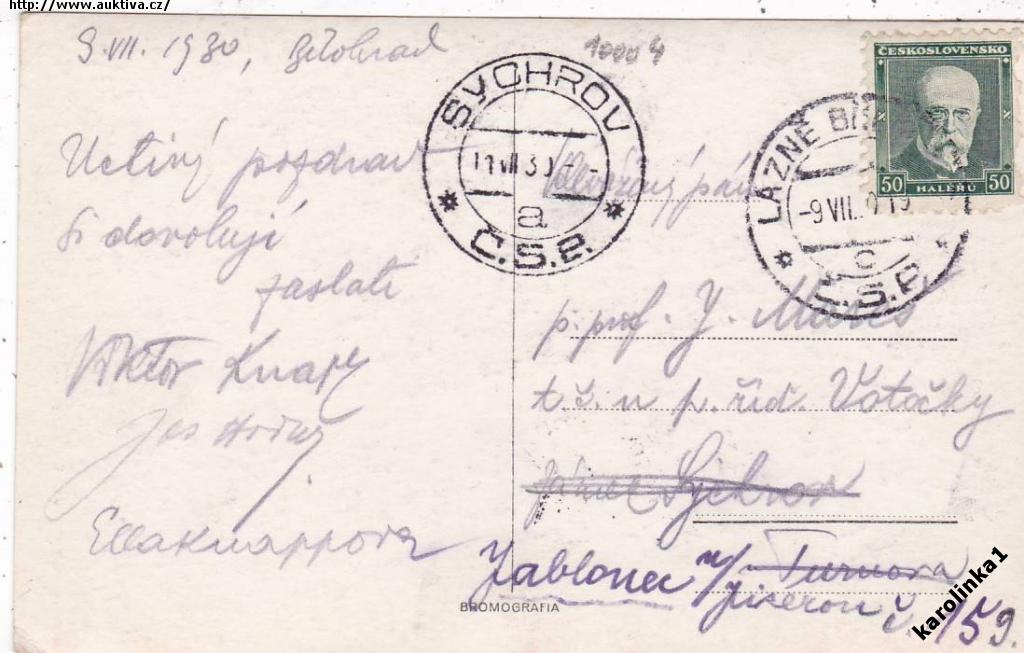 http://www.auktiva.cz/
9.VII.1930, Bělohrad
10004
Uctivý pozdrav
si dovolují
zaslati
Viktor Knapp
Jos
Ella Knappova
SYCHROV
VII 30
a
Č.S.P.
LÁZNĚ
-9 VII.
c
Č.S.P.
ČESKOSLOVENSKO
50 HALÉŘŮ 50
Velevážený pán
p. prof. J. Mareš
t.č. u p. říd. Votočky
Sychrov
Jablonec n/ Turnova
Jizerou č. 159.
BROMOGRAFIA
karolinka1